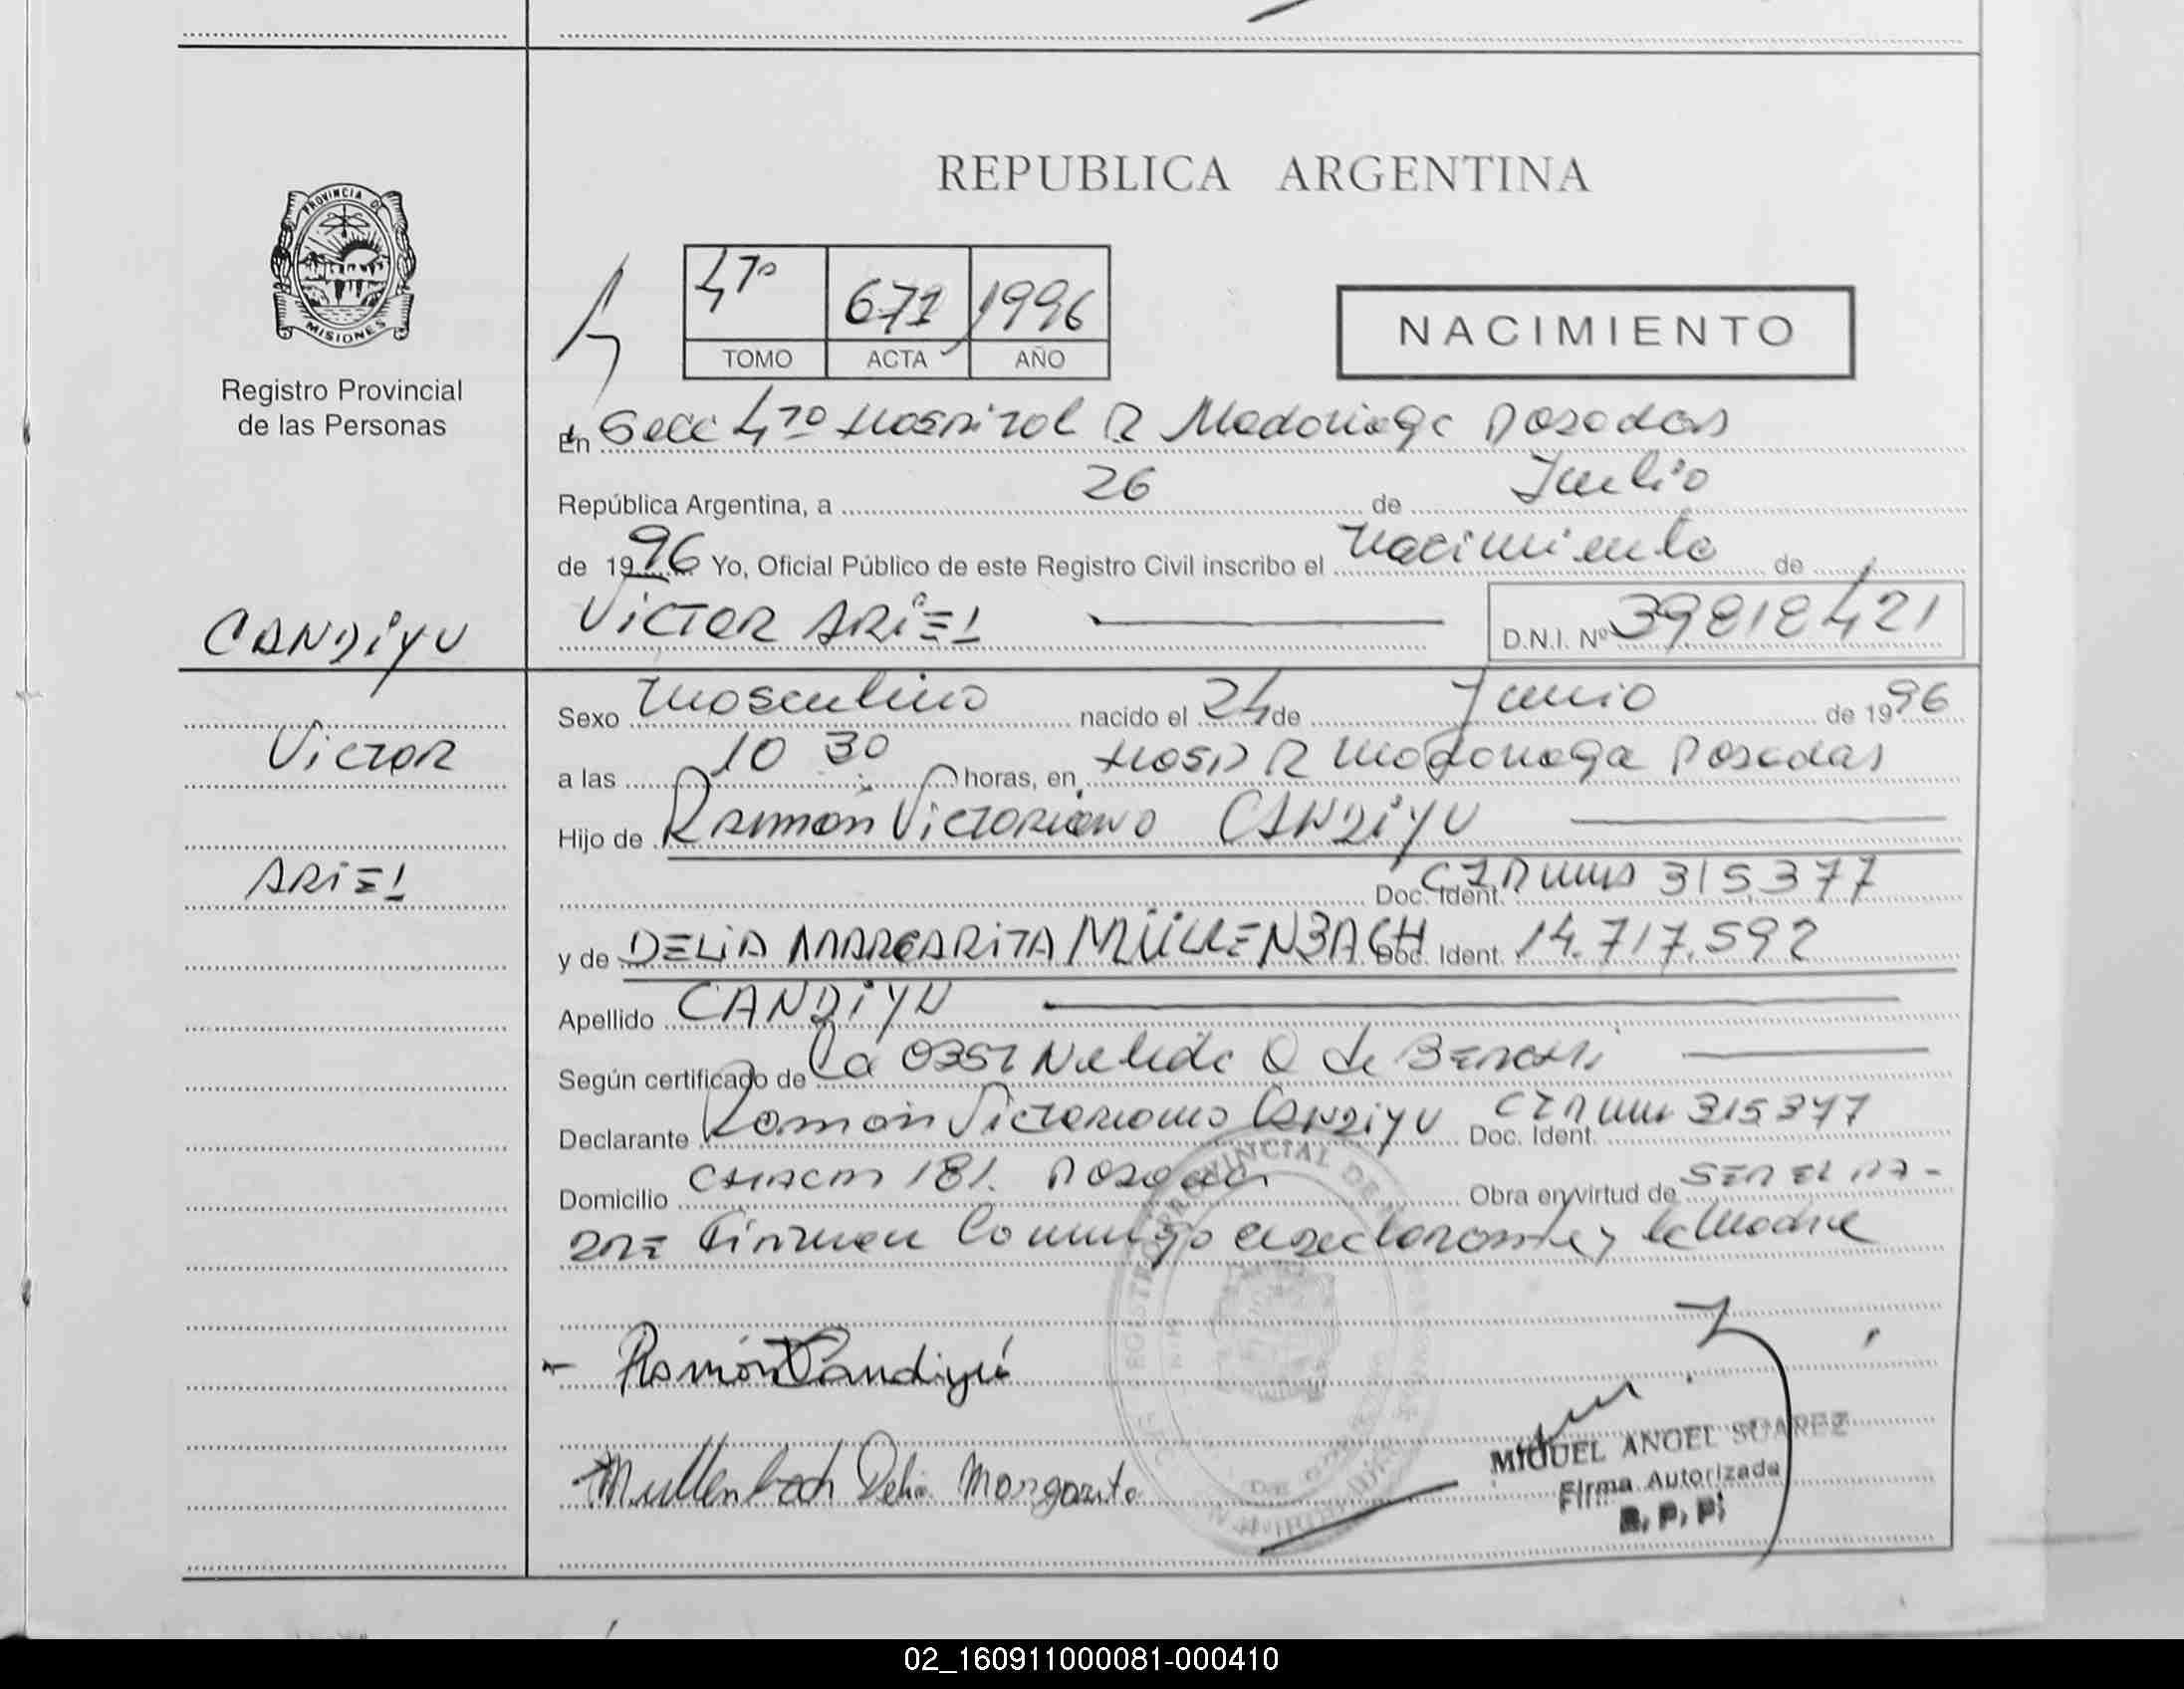 REPUBLICA ARGENTINA
PROVINCIA DE
MISIONES
Registro Provincial
de las Personas
4to 671 1996
TOMO ACTA AÑO
NACIMIENTO
En Secc 4to Hospital R Madariaga Posadas
República Argentina, a 26 de Julio
de 1996 Yo, Oficial Público de este Registro Civil inscribo el Nacimiento de
CANDIYU
VICTOR ARIEL D.N.I. Nº 39818421
Sexo Masculino nacido el 24 de Junio de 1996
Victor
a las 10 30 horas, en Hosp R Madariaga Posadas
Hijo de Ramón Victoriano CANDIYU
ARIEL
Doc. Ident. 315.377
y de DELIA MARGARITA MÜLLENBACH Doc. Ident. 14.717.592
Apellido CANDIYU
Según certificado de La 0357 Nelida de
Declarante Ramón Victoriano CANDIYU Doc. Ident. 315377
Domicilio 181. Posadas Obra en virtud de SER EL PA-
DRE Firman Conmigo el declarante y la Madre
Ramón Candiyú
Mullenbach Delia Margarita
MIGUEL ANGEL SUAREZ
Firma Autorizada
R. P. P.
02_160911000081-000410